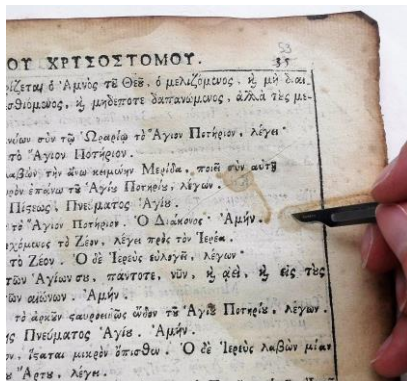 53
ΟΥ ΧΡΥΣΟΣΤΟΜΟΥ. 35
ρίζεται ὁ Ἀμνὸς τȣ͂ Θεȣ͂, ὁ μελιζόμενος, ϗ μὴ διαι-
σθιόμενος, ϗ μηδέποτε δαπανώμενος, ἀλλὰ τȣ̀ς με-
σὺν τῷ Ὡραρίῳ τὸ Ἅγιον Ποτήριον, λέγει·
τὸ Ἅγιον Ποτήριον.
λαβὼν τὴν ἄνω κειμένην Μερίδα, ποιεῖ σὺν αὐτῇ
ρὸν ἐπάνω τȣ͂ Ἁγίȣ Ποτηρίȣ, λέγων.
Πίστεως, Πνεύματος Ἁγίȣ.
τὸ Ἅγιον Ποτήριον. Ὁ Διάκονος· Ἀμήν.
χόμενος τὸ Ζέον, λέγει πρὸς τὸν Ἱερέα.
τὸ Ζέον. Ὁ δὲ Ἱερεὺς εὐλογεῖ, λέγων·
τῶν Ἁγίων σȣ, πάντοτε, νῦν, ϗ ἀεὶ, ϗ εἰς τȣ̀ς
τῶν αἰώνων· Ἀμήν.
τὸ ἀρκȣ͂ν σταυροειδῶς ἔνδον τȣ͂ Ἁγίȣ Ποτηρίȣ, λέγων.
ης Πνεύματος Ἁγίȣ. Ἀμήν.
ον, ἵσταται μικρὸν ὄπισθεν. Ὁ δὲ Ἱερεὺς λαβὼν μίαν
Ἄρτȣ, λέγει.